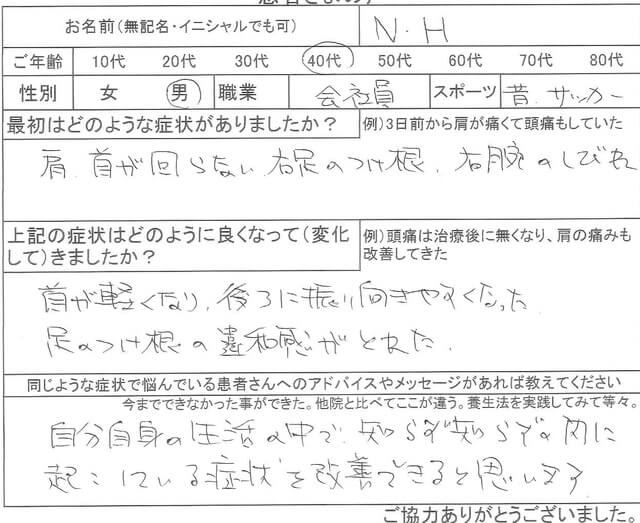 お名前(無記名・イニシャルでも可) N・H
ご年齢 10代 20代 30代 40代 50代 60代 70代 80代
性別 女 男 職業 会社員 スポーツ 昔、サッカー
最初はどのような症状がありましたか? 例)3日前から肩が痛くて頭痛もしていた
肩、首が回らない 右足のつけ根、右腕のしびれ
上記の症状はどのように良くなって(変化して)きましたか? 例)頭痛は治療後に無くなり、肩の痛みも改善してきた
首が軽くなり、後ろに振り向きやすくなった
足のつけ根の違和感がとれた。
同じような症状で悩んでいる患者さんへのアドバイスやメッセージがあれば教えてください
今までできなかった事ができた。他院と比べてここが違う。養生法を実践してみて等々。
自分自身の生活の中で、知らず知らずの内に
起こしている症状を改善できると思います
ご協力ありがとうございました。